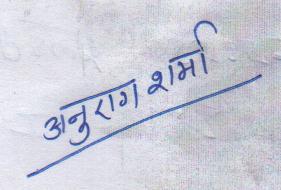 अनुराग शर्मा